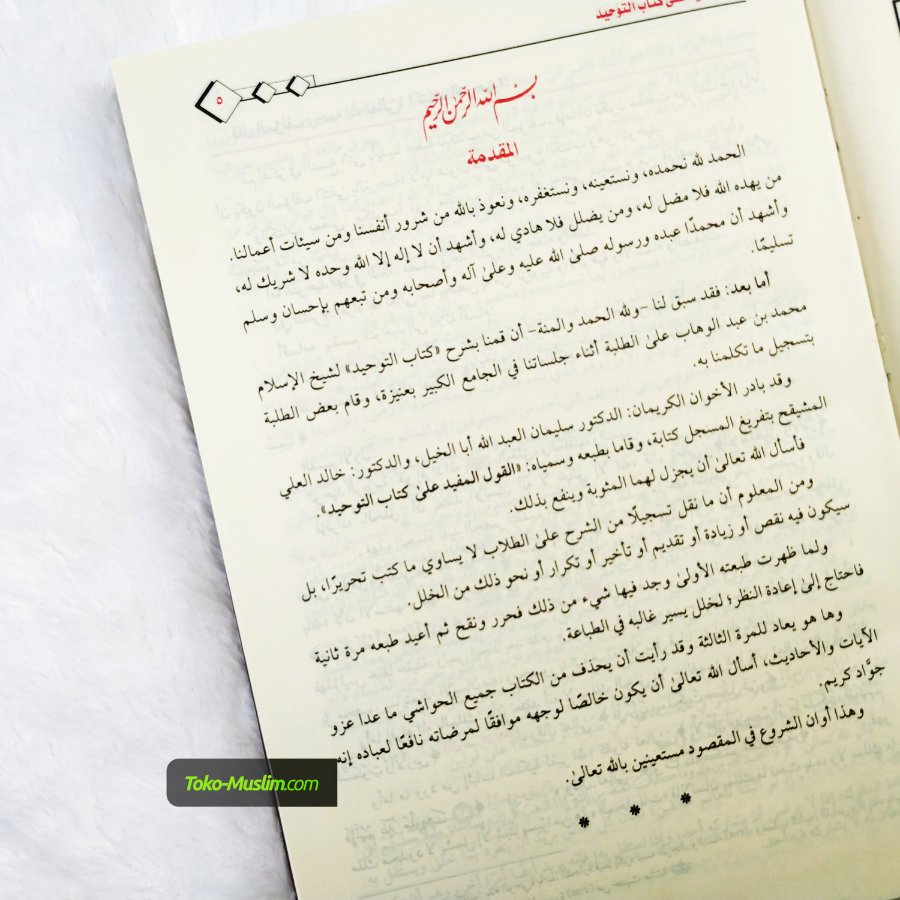 على كتاب التوحيد
٥
بسم الله الرحمن الرحيم
المقدمة
الحمد لله نحمده، ونستعينه، ونستغفره، ونعوذ بالله من شرور أنفسنا ومن سيئات أعمالنا.
من يهده الله فلا مضل له، ومن يضلل فلا هادي له، وأشهد أن لا إله إلا الله وحده لا شريك له،
وأشهد أن محمدًا عبده ورسوله صلىٰ الله عليه وعلىٰ آله وأصحابه ومن تبعهم بإحسان وسلم
تسليمًا.
أما بعد: فقد سبق لنا -ولله الحمد والمنة- أن قمنا بشرح «كتاب التوحيد» لشيخ الإسلام
محمد بن عبد الوهاب علىٰ الطلبة أثناء جلساتنا في الجامع الكبير بعنيزة، وقام بعض الطلبة
بتسجيل ما تكلمنا به.
وقد بادر الأخوان الكريمان: الدكتور سليمان العبد الله أبا الخيل، والدكتور: خالد العلي
المشيقح بتفريغ المسجل كتابة، وقاما بطبعه وسمياه: «القول المفيد علىٰ كتاب التوحيد».
فأسأل الله تعالىٰ أن يجزل لهما المثوبة وينفع بذلك.
ومن المعلوم أن ما نقل تسجيلًا من الشرح علىٰ الطلاب لا يساوي ما كتب تحريرًا، بل
سيكون فيه نقص أو زيادة أو تقديم أو تأخير أو تكرار أو نحو ذلك من الخلل.
ولما ظهرت طبعته الأولىٰ وجد فيها شيء من ذلك فحرر ونقح ثم أعيد طبعه مرة ثانية
فاحتاج إلىٰ إعادة النظر؛ لخلل يسير غالبه في الطباعة.
وها هو يعاد للمرة الثالثة وقد رأيت أن يحذف من الكتاب جميع الحواشي ما عدا عزو
الآيات والأحاديث، أسأل الله تعالىٰ أن يكون خالصًا لوجهه موافقًا لمرضاته نافعًا لعباده إنه
جوَّاد كريم.
وهذا أوان الشروع في المقصود مستعينين بالله تعالىٰ.
* * *
Toko-Muslim.com